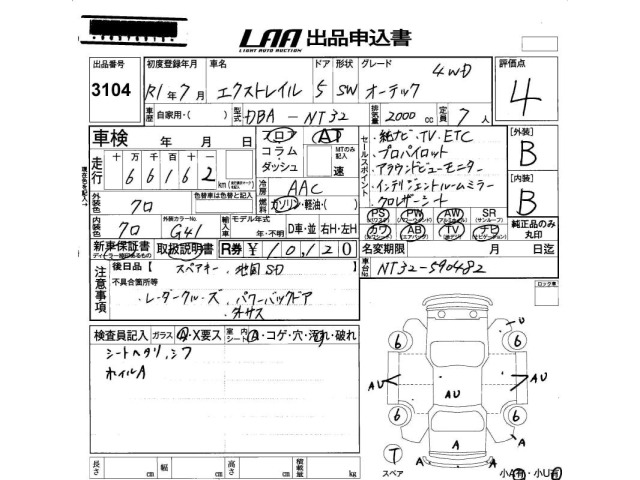 LAA 出品申込書
LIGHT AUTO AUCTION
出品番号 初度登録年月 車名 ドア 形状 グレード 評価点
3104 R1年7月 エクストレイル 5 SW オーテック 4WD 4
車歴 自家用・( ) 型式 DBA-NT32 排気量 2000cc 定員 7人
車検 年 月 日
フロア AT
コラム・ダッシュ MTのみ記入 速
セールスポイント
・純ナビ・TV・ETC
・プロパイロット
・アラウンドビューモニター
・インテリジェントルームミラー
・クロザーシート
[外装] B
[内装] B
走行 十万 万 千 百 十 一
66162 km
冷房 AAC
燃料 ガソリン・軽油・( )
外装色 クロ 色替車は色替と記入
内装色 クロ 外装カラーNo. G41 輸入車 モデル年式 年・不明 D車・並 右H・左H
PS PW AW SR
カワ AB TV ナビ
純正品のみ丸印
新車保証書 取扱説明書 R券 ¥10,120 名変期限 月 日迄
注意事項 後日品 スペアキー、地図SD
不具合箇所等
・レーダークルーズ、パワーバックドア
・外サス
車台No. NT32-590482
ロック車
検査員記入 ガラス A・X要ス 室内シート A・コゲ・穴・汚れ・破れ
シートヘタリ、シワ
ホイルA
U
6 6
AU AU AU
6 6
A A A A
T
スペア
長さ cm 幅 cm 高さ cm 積載量 kg
小A有・小U有